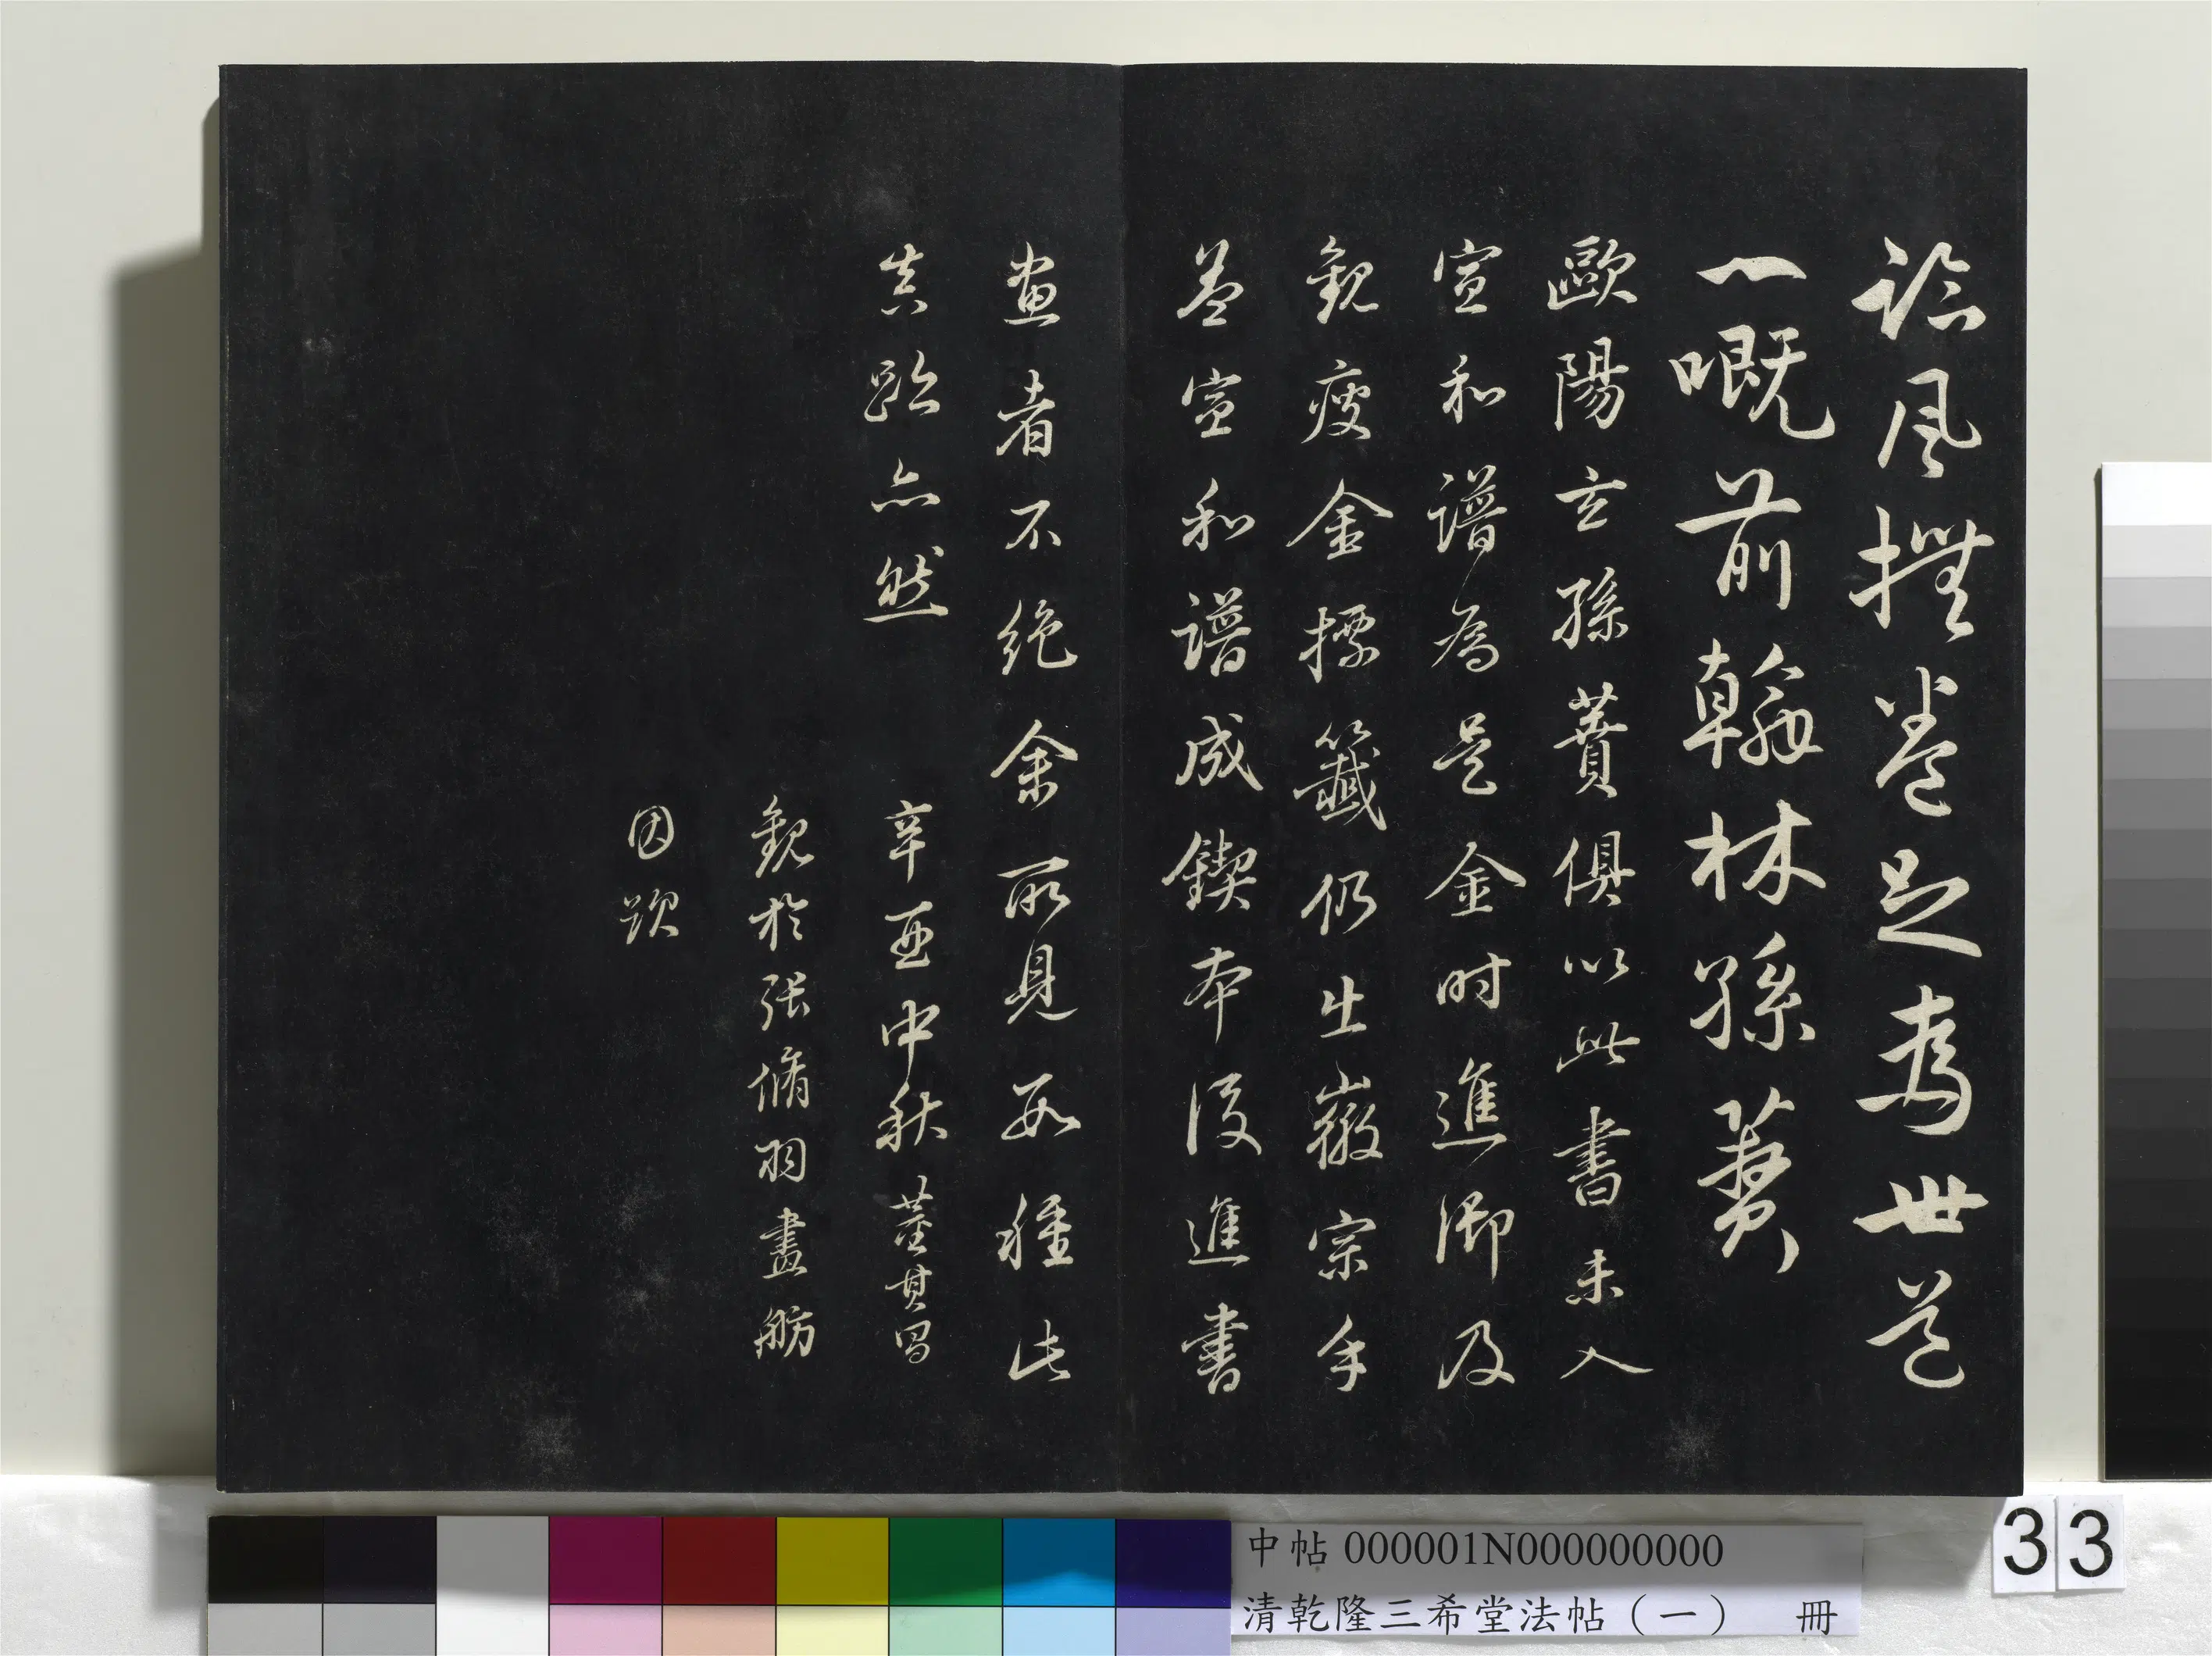 諗風撫卷足為世道
一嘅前翰林孫蕡
歐陽玄孫蕡俱以此書未入
宣和譜為是金時進御及
觀瘦金標籤仍出徽宗手
葢宣和譜成鍥本後進書
畫者不絕余所見數種此
真跡亦然
辛酉中秋董其昌
觀於張脩羽畫舫
因跋
中帖 000001N000000000
清乾隆三希堂法帖（一） 冊
33